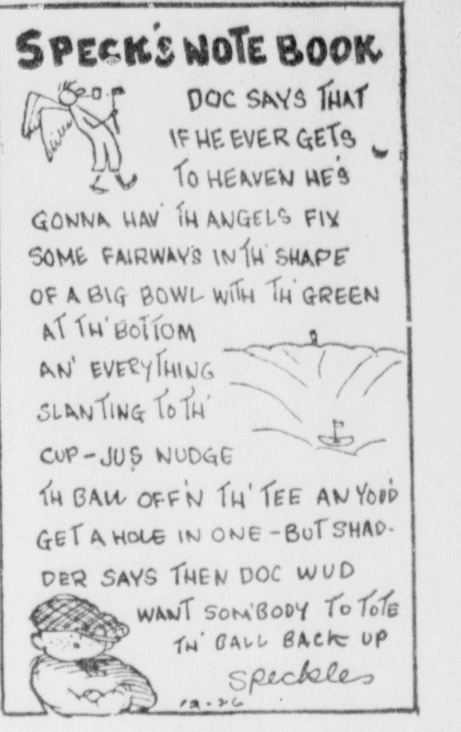 SPECK'S NOTE BOOK
DOC SAYS THAT
IF HE EVER GETS
TO HEAVEN HE'S
GONNA HAV' TH ANGELS FIX
SOME FAIRWAYS IN TH' SHAPE
OF A BIG BOWL WITH TH' GREEN
AT TH' BOTTOM
AN' EVERYTHING
SLANTING TO TH'
CUP - JUS NUDGE
TH BALL OFF'N TH' TEE AN YOU'D
GET A HOLE IN ONE - BUT SHAD-
DER SAYS THEN DOC WUD
WANT SOM'BODY TO TOTE
TH' BALL BACK UP
Speckles
12-26